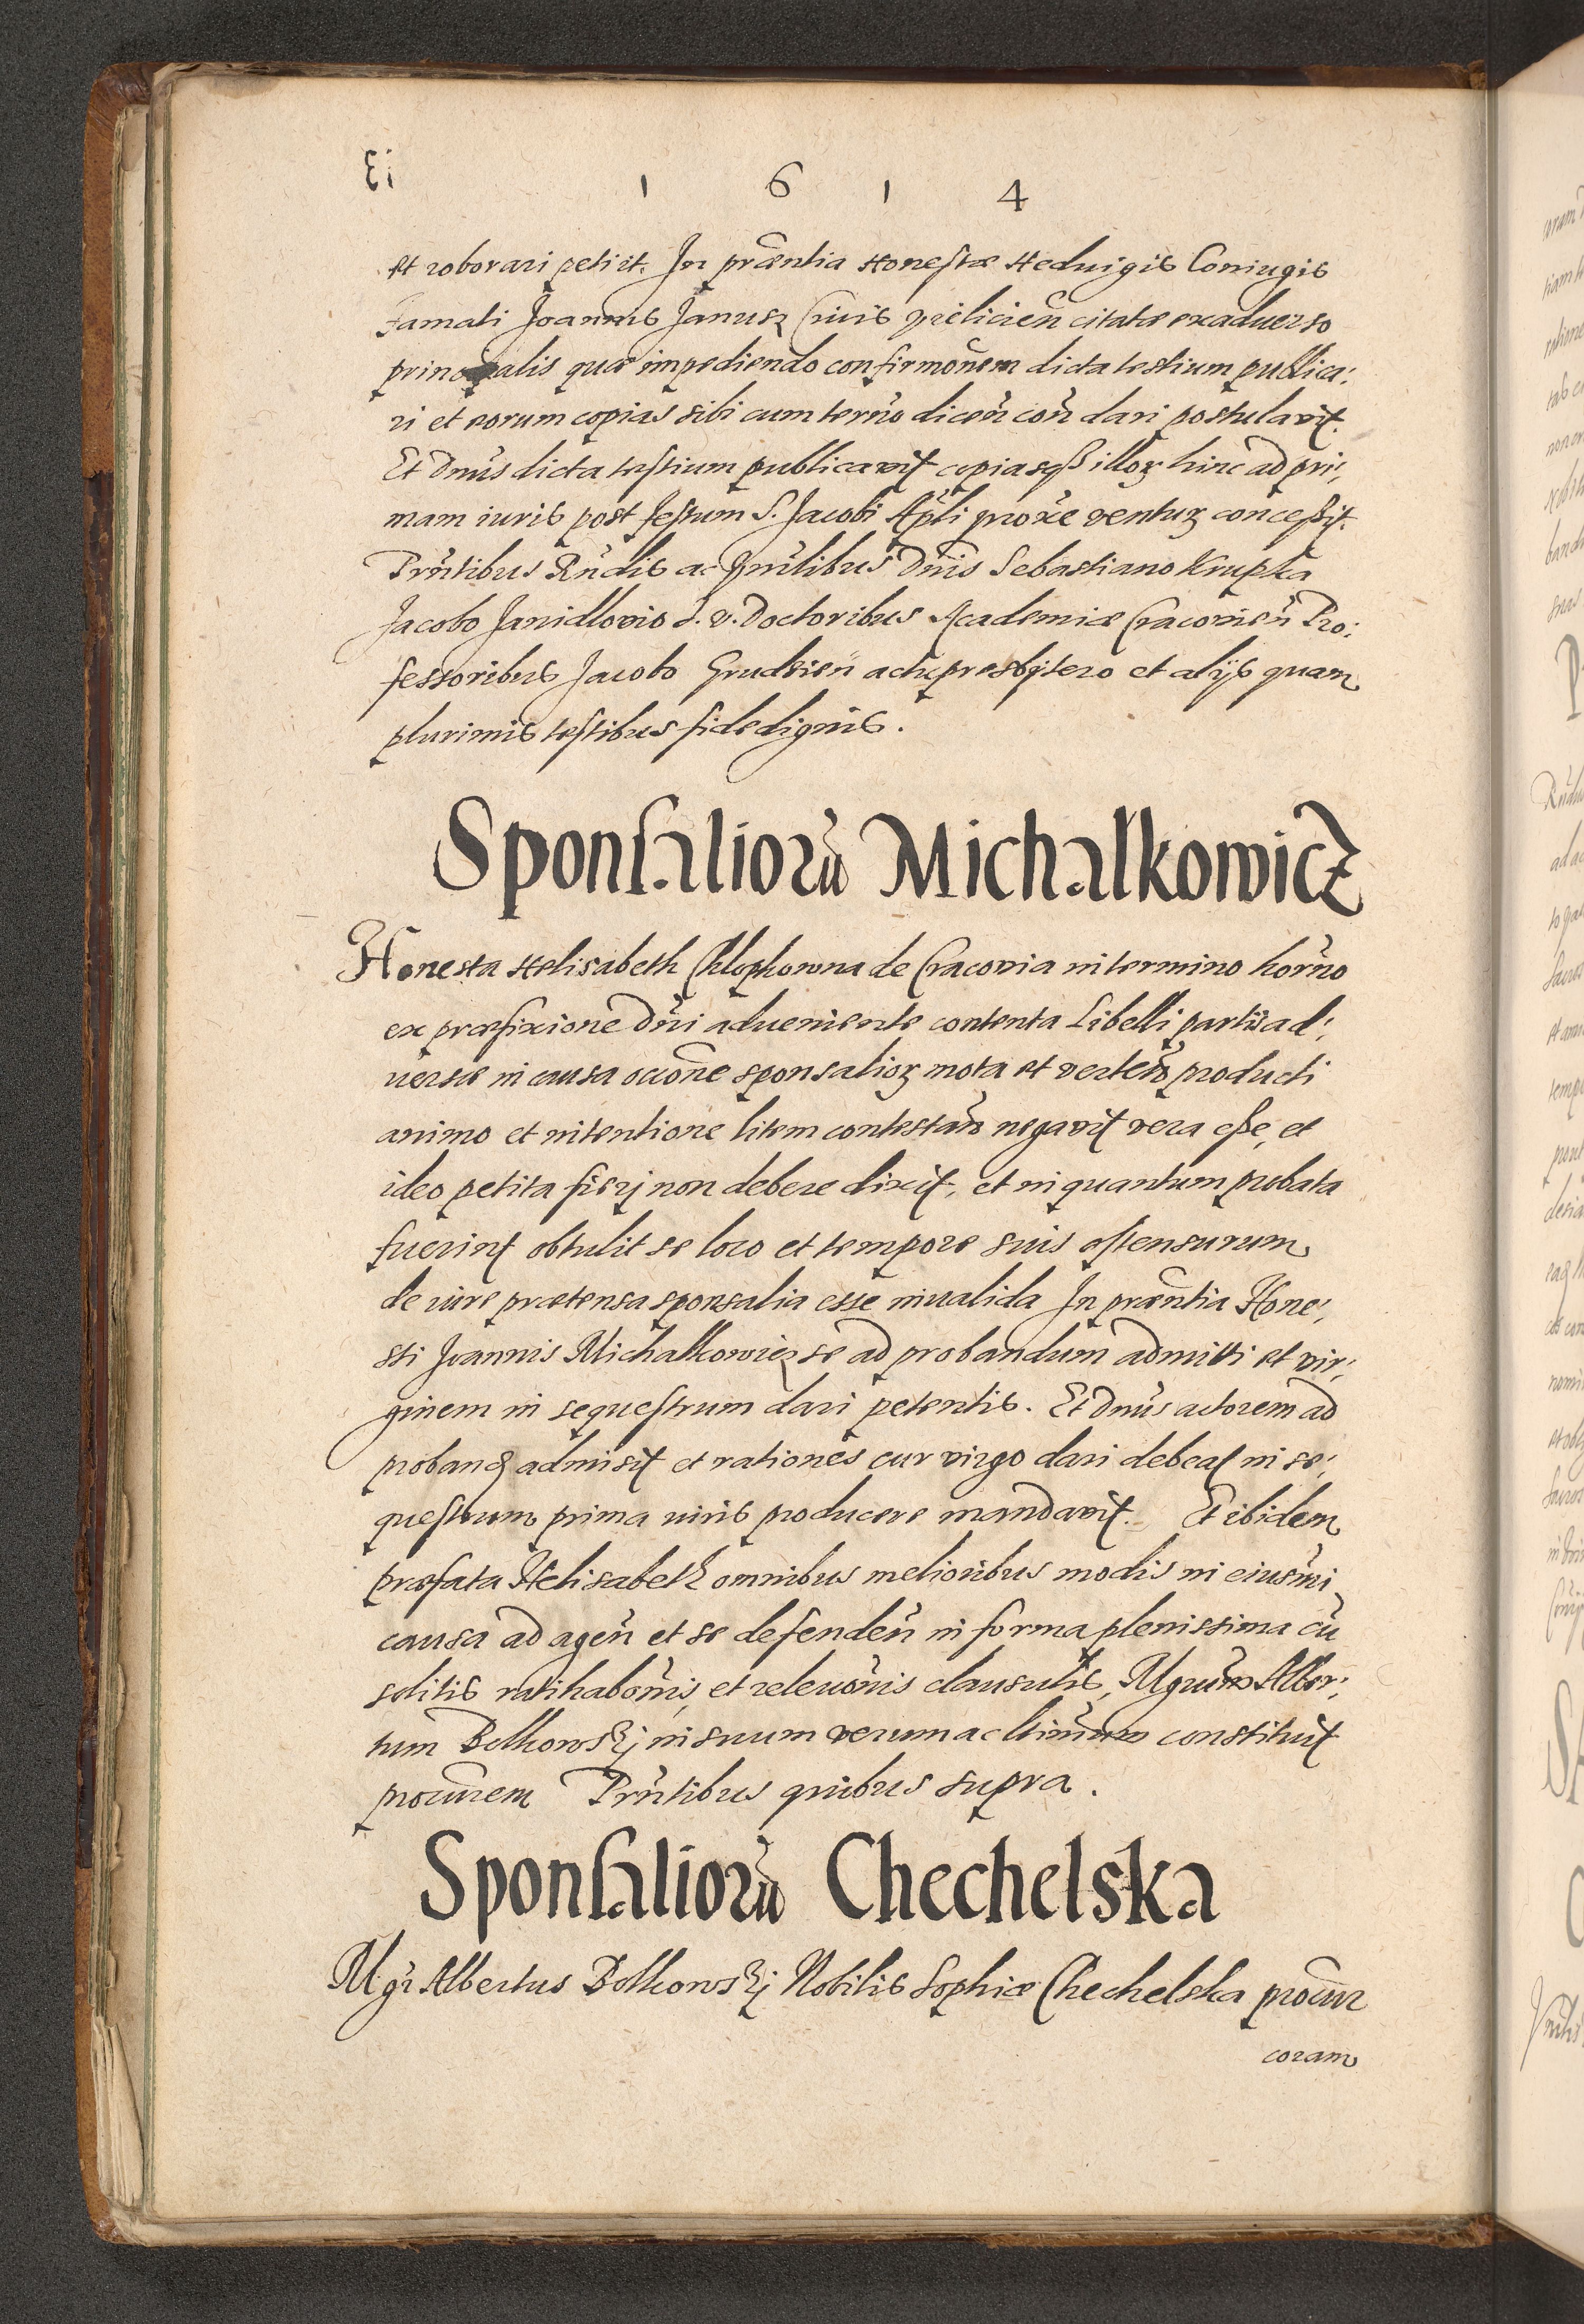 1 6 1 4
et roborari petiit. In præntia Honestæ Heduigis Coniugis
Famati Joannis Janusz Ciuis Vieliciēn citatæ exaduerso
principalis quæ impediendo confirmōnem dicta testium publica:
ri et eorum copias sibi cum terno dicen con dari postulavit.
Et Dnus dicta testium publicavit copiasqß illoꝝ hinc ad pri:
mam iuris post festum S. Jacobi Apli proxe ventuꝝ conceßit.
Prntibus Rndis ac Gnalibus Dnis Sebastiano Krupka
Jacobo Janidlovio I. V. Doctoribus Academiæ Cracovien Pro:
fessoribus Jacobo Grudzien actu presbitero et alijs quam
plurimis testibus fidedignis.
Sponsaliorū Michalkowicz
Honesta Helisabeth Chlopkowna de Cracovia in termino horno
ex præfixione Dni adueniente contenta Libelli partis ad:
uersæ in causa occone sponsalioꝝ mota et verten producti
animo et intentione litem contestan negavit vera eße, et
ideo petita fierj non debere dixit, et in quantum probata
fuerint obtulit se loco et tempore suis ostensurum
de iure prætensa sponsalia esse inualida In præntia Hone:
sti Joannis Michalkowicz se ad probandum admitti et vir:
ginem in sequestrum dari petentis. Et Dnus actorem ad
proband admisit et rationes cur virgo dari debeat in se:
questrum prima iuris producere mandavit. Et ibidem
præfata Helisabeth omnibus melioribus modis in eiusmi
causa ad agen et se defenden in forma plenissima cū
solitis ratihabonis, et releuonis clausulis, Mgrum Alber:
tum Bolkowskj in suum verum ac ltimum constituit
procurem Prntibus quibus supra.
Sponsaliorū Chechelska
Mgr Albertus Bolkowskj Nobilis Sophiæ Chechelska procur
coram